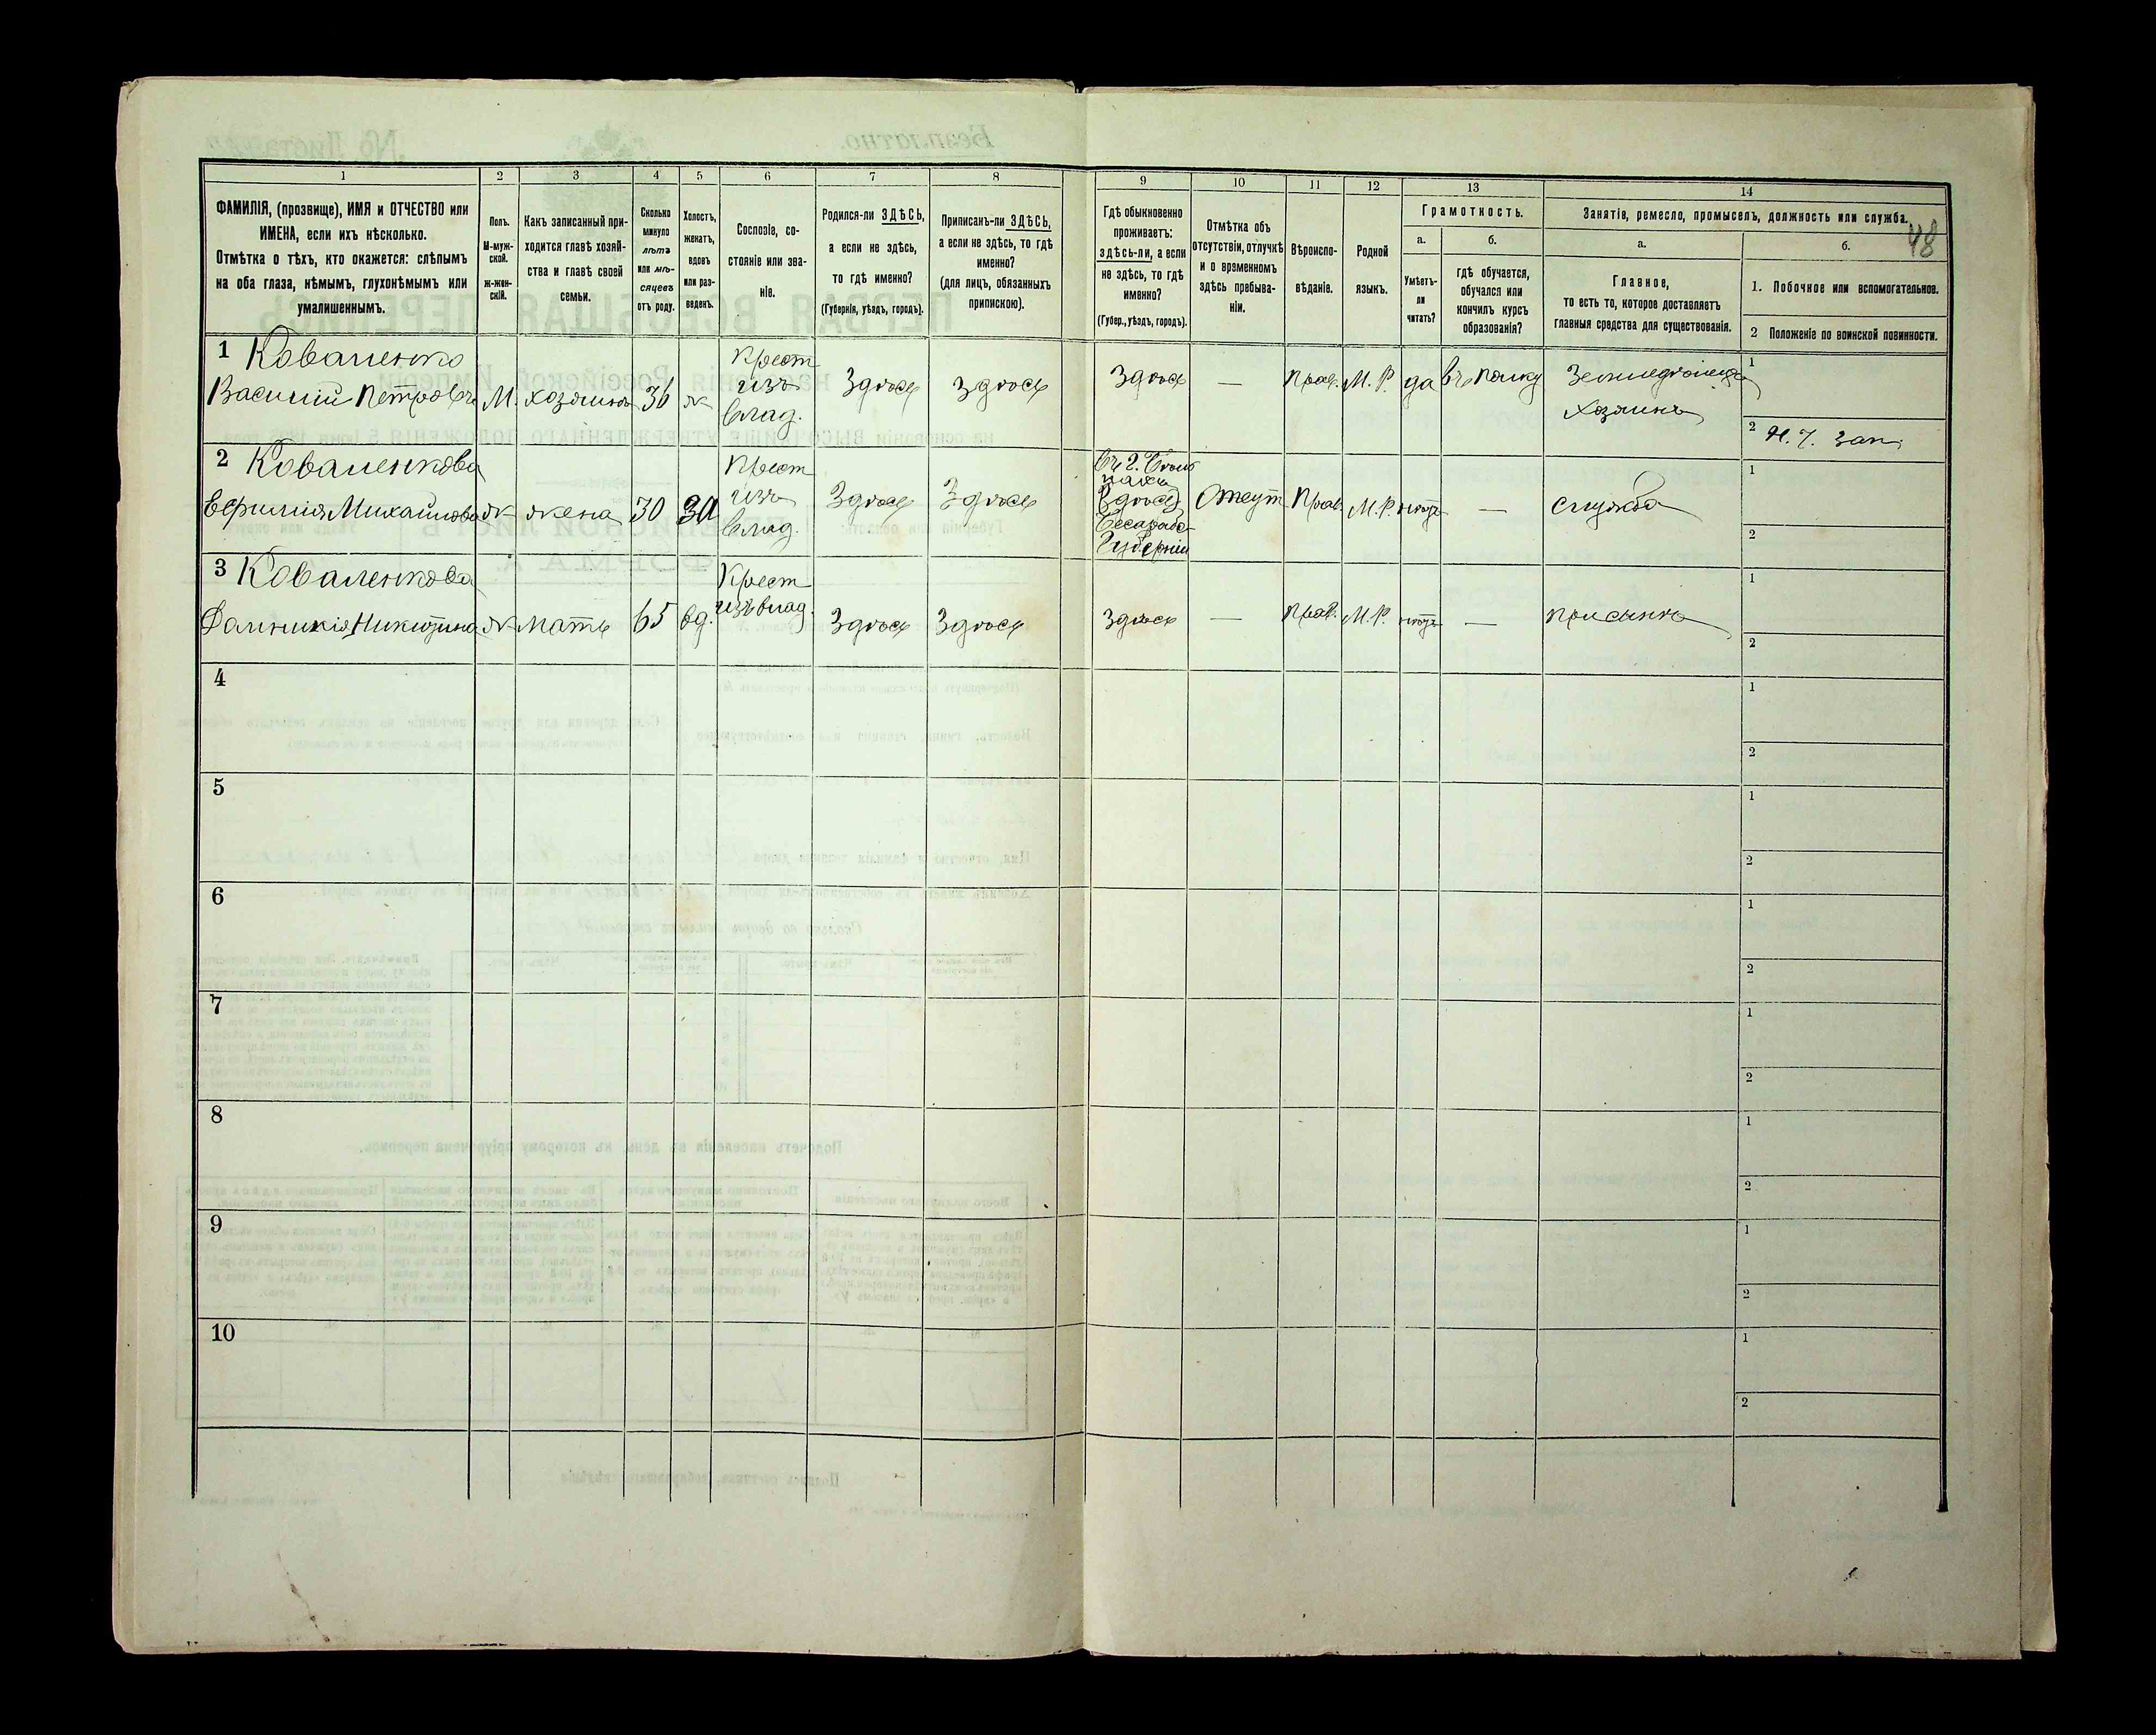 48
1 2 3 4 5 6 7 8 9 10 11 12 13 14
ФАМИЛІЯ, (прозвище), ИМЯ и ОТЧЕСТВО или
ИМЕНА, если ихъ нѣсколько.
Отмѣтка о тѣхъ, кто окажется: слѣпымъ
на оба глаза, нѣмымъ, глухонѣмымъ или
умалишеннымъ.
Полъ.
М-муж-
ской.
ж-жен-
скій.
Какъ записанный при-
ходится главѣ хозяй-
ства и главѣ своей
семьи.
Сколько
минуло
лѣтъ
или мѣ-
сяцевъ
отъ роду.
Холостъ,
женатъ,
вдовъ
или раз-
веденъ.
Сословіе, со-
стояніе или зва-
ніе.
Родился-ли ЗДѢСЬ,
а если не здѣсь,
то гдѣ именно?
(Губернія, уѣздъ, городъ).
Приписанъ-ли ЗДѢСЬ,
а если не здѣсь, то гдѣ
именно?
(для лицъ, обязанныхъ
припискою).
Гдѣ обыкновенно
проживаетъ:
здѣсь-ли, а если
не здѣсь, то гдѣ
именно?
(Губер., уѣздъ, городъ).
Отмѣтка объ
отсутствіи, отлучкѣ
и о временномъ
здѣсь пребыва-
ніи.
Вѣроиспо-
вѣданіе.
Родной
языкъ.
Грамотность.
а.
Умѣетъ-
ли
читать?
б.
гдѣ обучается,
обучался или
кончилъ курсъ
образованія?
Занятіе, ремесло, промыселъ, должность или служба.
а.
Главное,
то есть то, которое доставляетъ
главныя средства для существованія.
б.
1. Побочное или вспомогательное.
2 Положеніе по воинской повинности.
1 Коваленко
Василій Петровъ
М.
хозяинъ
36
ж
Крест
изъ
влад.
Здѣсь
здѣсь
здѣсь
—
Прав.
М. Р.
да
въ полку
Земледѣлецъ
хозяинъ
1
2
2 Коваленкова
Ефимія Михайлова
ж
жена
30
Крест
изъ
влад.
Здѣсь
Здѣсь
Бесараб
Губерніи
Отсут
Прав.
М. Р.
нѣтъ
—
служба
1
2
3 Коваленкова
Никитина
ж
мать
65
вд.
Крест
изъ влад.
Здѣсь
Здѣсь
Здѣсь
—
Прав.
М. Р.
нѣтъ
—
при сынѣ
1
2
4
1
2
5
1
2
6
1
2
7
1
2
8
1
2
9
1
2
10
1
2